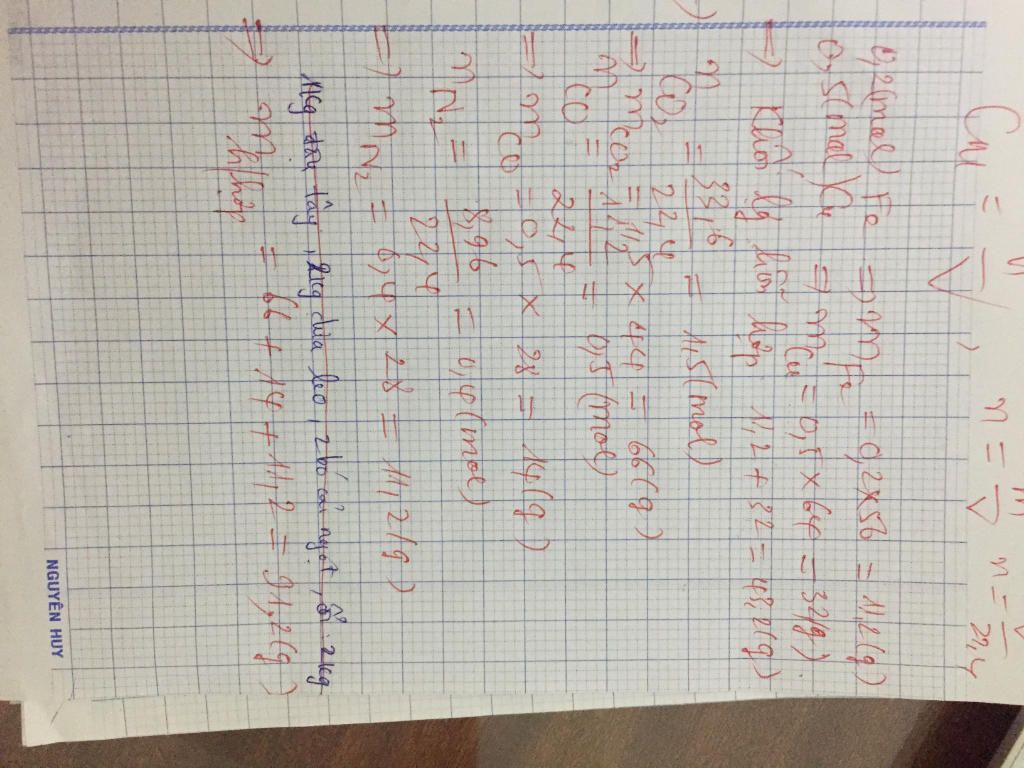 CM = n/V, n = m/ n = V/22,4
0,2(mol) Fe => mFe = 0,2x56 = 11,2(g)
0,5(mol) Cu => mCu = 0,5 x 64 = 32(g)
=> Khối lg hỗn hợp 11,2 + 32 = 43,2(g)
nCO2 = 33,6/22,4 = 1,5(mol)
=> mCO2 = 1,5 x 44 = 66(g)
nCO = 11,2/22,4 = 0,5(mol)
=> mCO = 0,5 x 28 = 14(g)
nN2 = 8,96/22,4 = 0,4(mol)
=> mN2 = 0,4 x 28 = 11,2(g)
1kg dâu tây, 2kg dưa leo, 2 bó cải ngọt, ổi 2kg
=> mh/hợp = 66 + 14 + 11,2 = 91,2(g)
NGUYÊN HUY